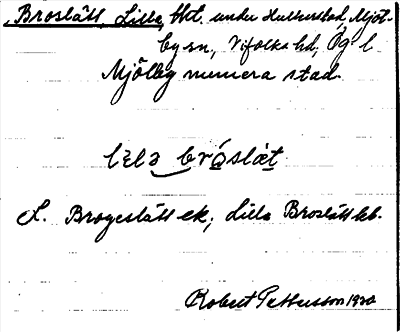 Broslätt, Lilla, tht. under Hulterstad, Mjöl-
by sn, Vifolka hd, Ög. l
Mjölby numera stad.
lɩlə bróslæt
L. Brogeslätt ek; Lilla Broslätt kb.
Robert Pettersson 1920